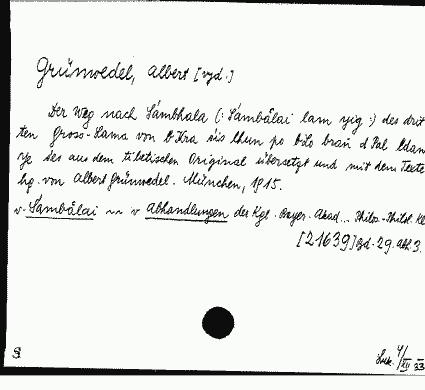 Grünwedel, Albert [vyd.]
Der Weg nach Śambhala (: Śambālai lam yig :) des drit
ten Gross-Lama von bKra šis lhun po bLo bzañ dPal ldan
Ye šes aus dem tibetischen Original übersetzt und mit dem Texte
hg. von Albert Grünwedel. München, 1915.
v Śambālai ~ v Abhandlungen der Kgl. Bayer. Akad... Philos-Philol. Kl
[21639] Bd. 29. Abh. 3.
4/XII 33